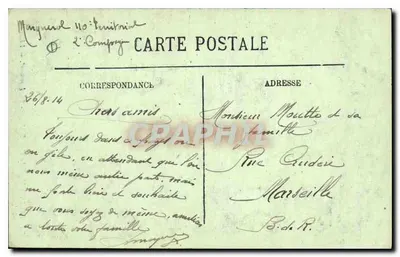 110e Territorial
2e Compagnie
CARTE POSTALE
CORRESPONDANCE
ADRESSE
26/8-14
Chers amis
Toujours dans
en attendant que l'on
nous mène autre part, mais
on porte bien et souhaite
que vous soyez de même, amitiés
à toute votre famille
Monsieur Moutte et sa
famille
Rue
Marseille
B.d.R.
CPARAMA